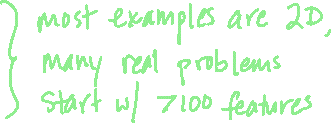 most examples are 2D,
many real problems
start w/ >100 features